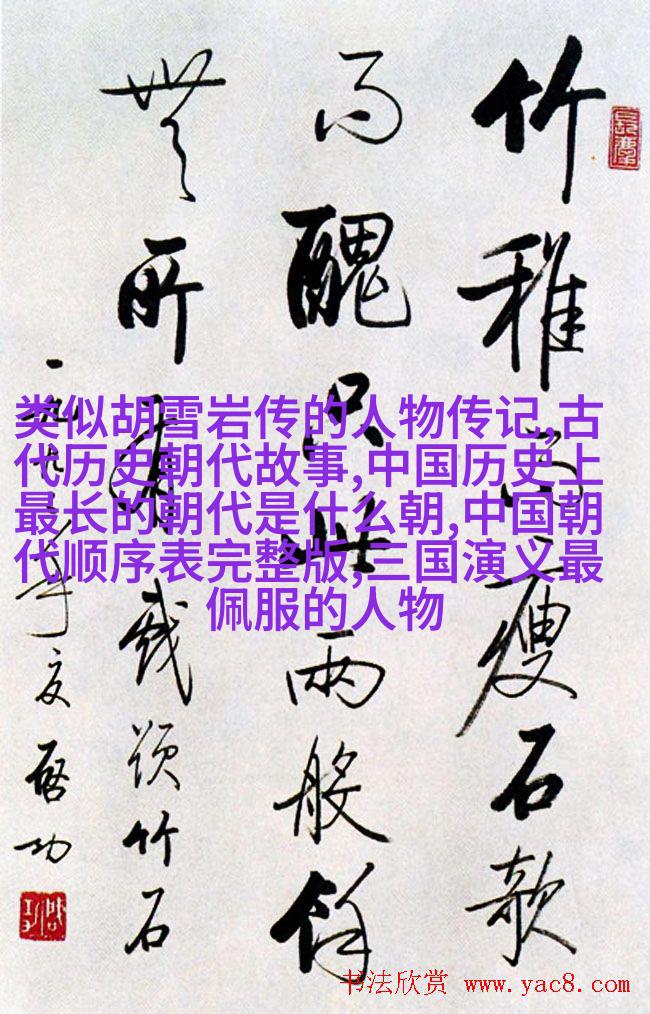 竹稚而瘦石欹
而醜只此兩般餘
無所有 戏题竹石
年夏 启功
类似胡雪岩传的人物传记,古
代历史朝代故事,中国历史上
最长的朝代是什么朝,中国朝
代顺序表完整版,三国演义最
佩服的人物
书法欣赏 www.yac8.com